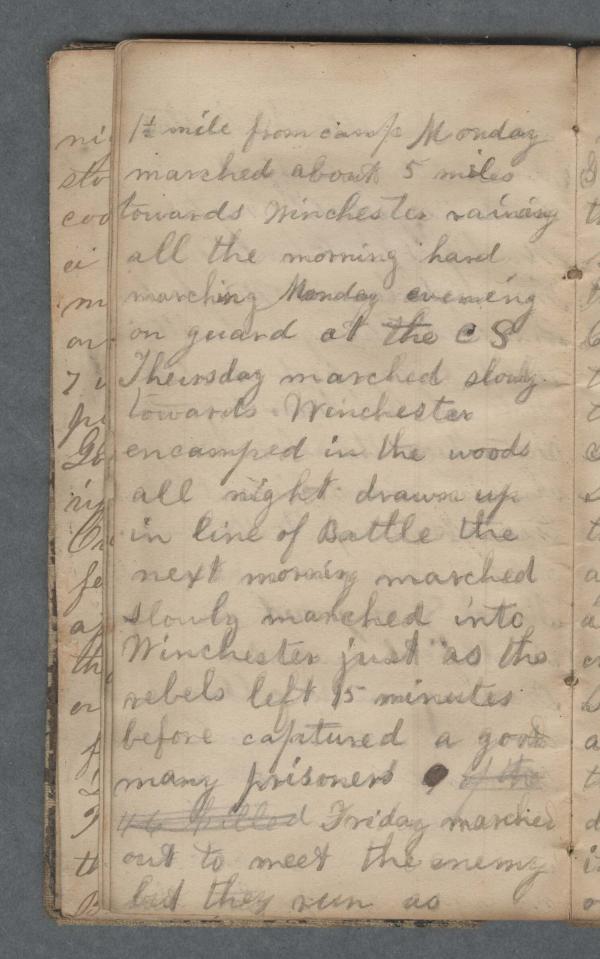 1½ mile from camp Monday
marched about 5 miles
towards Winchester raining
all the morning hard
marching Monday evening
on guard at the C S
Thursday marched slowly
towards Winchester
encamped in the woods
all night drawn up
in line of Battle the
next morning marched
slowly marched into
Winchester just as the
rebels left 15 minutes
before captured a good
many prisoners of the
46 killed Friday marched
out to meet the enemy
but they run as